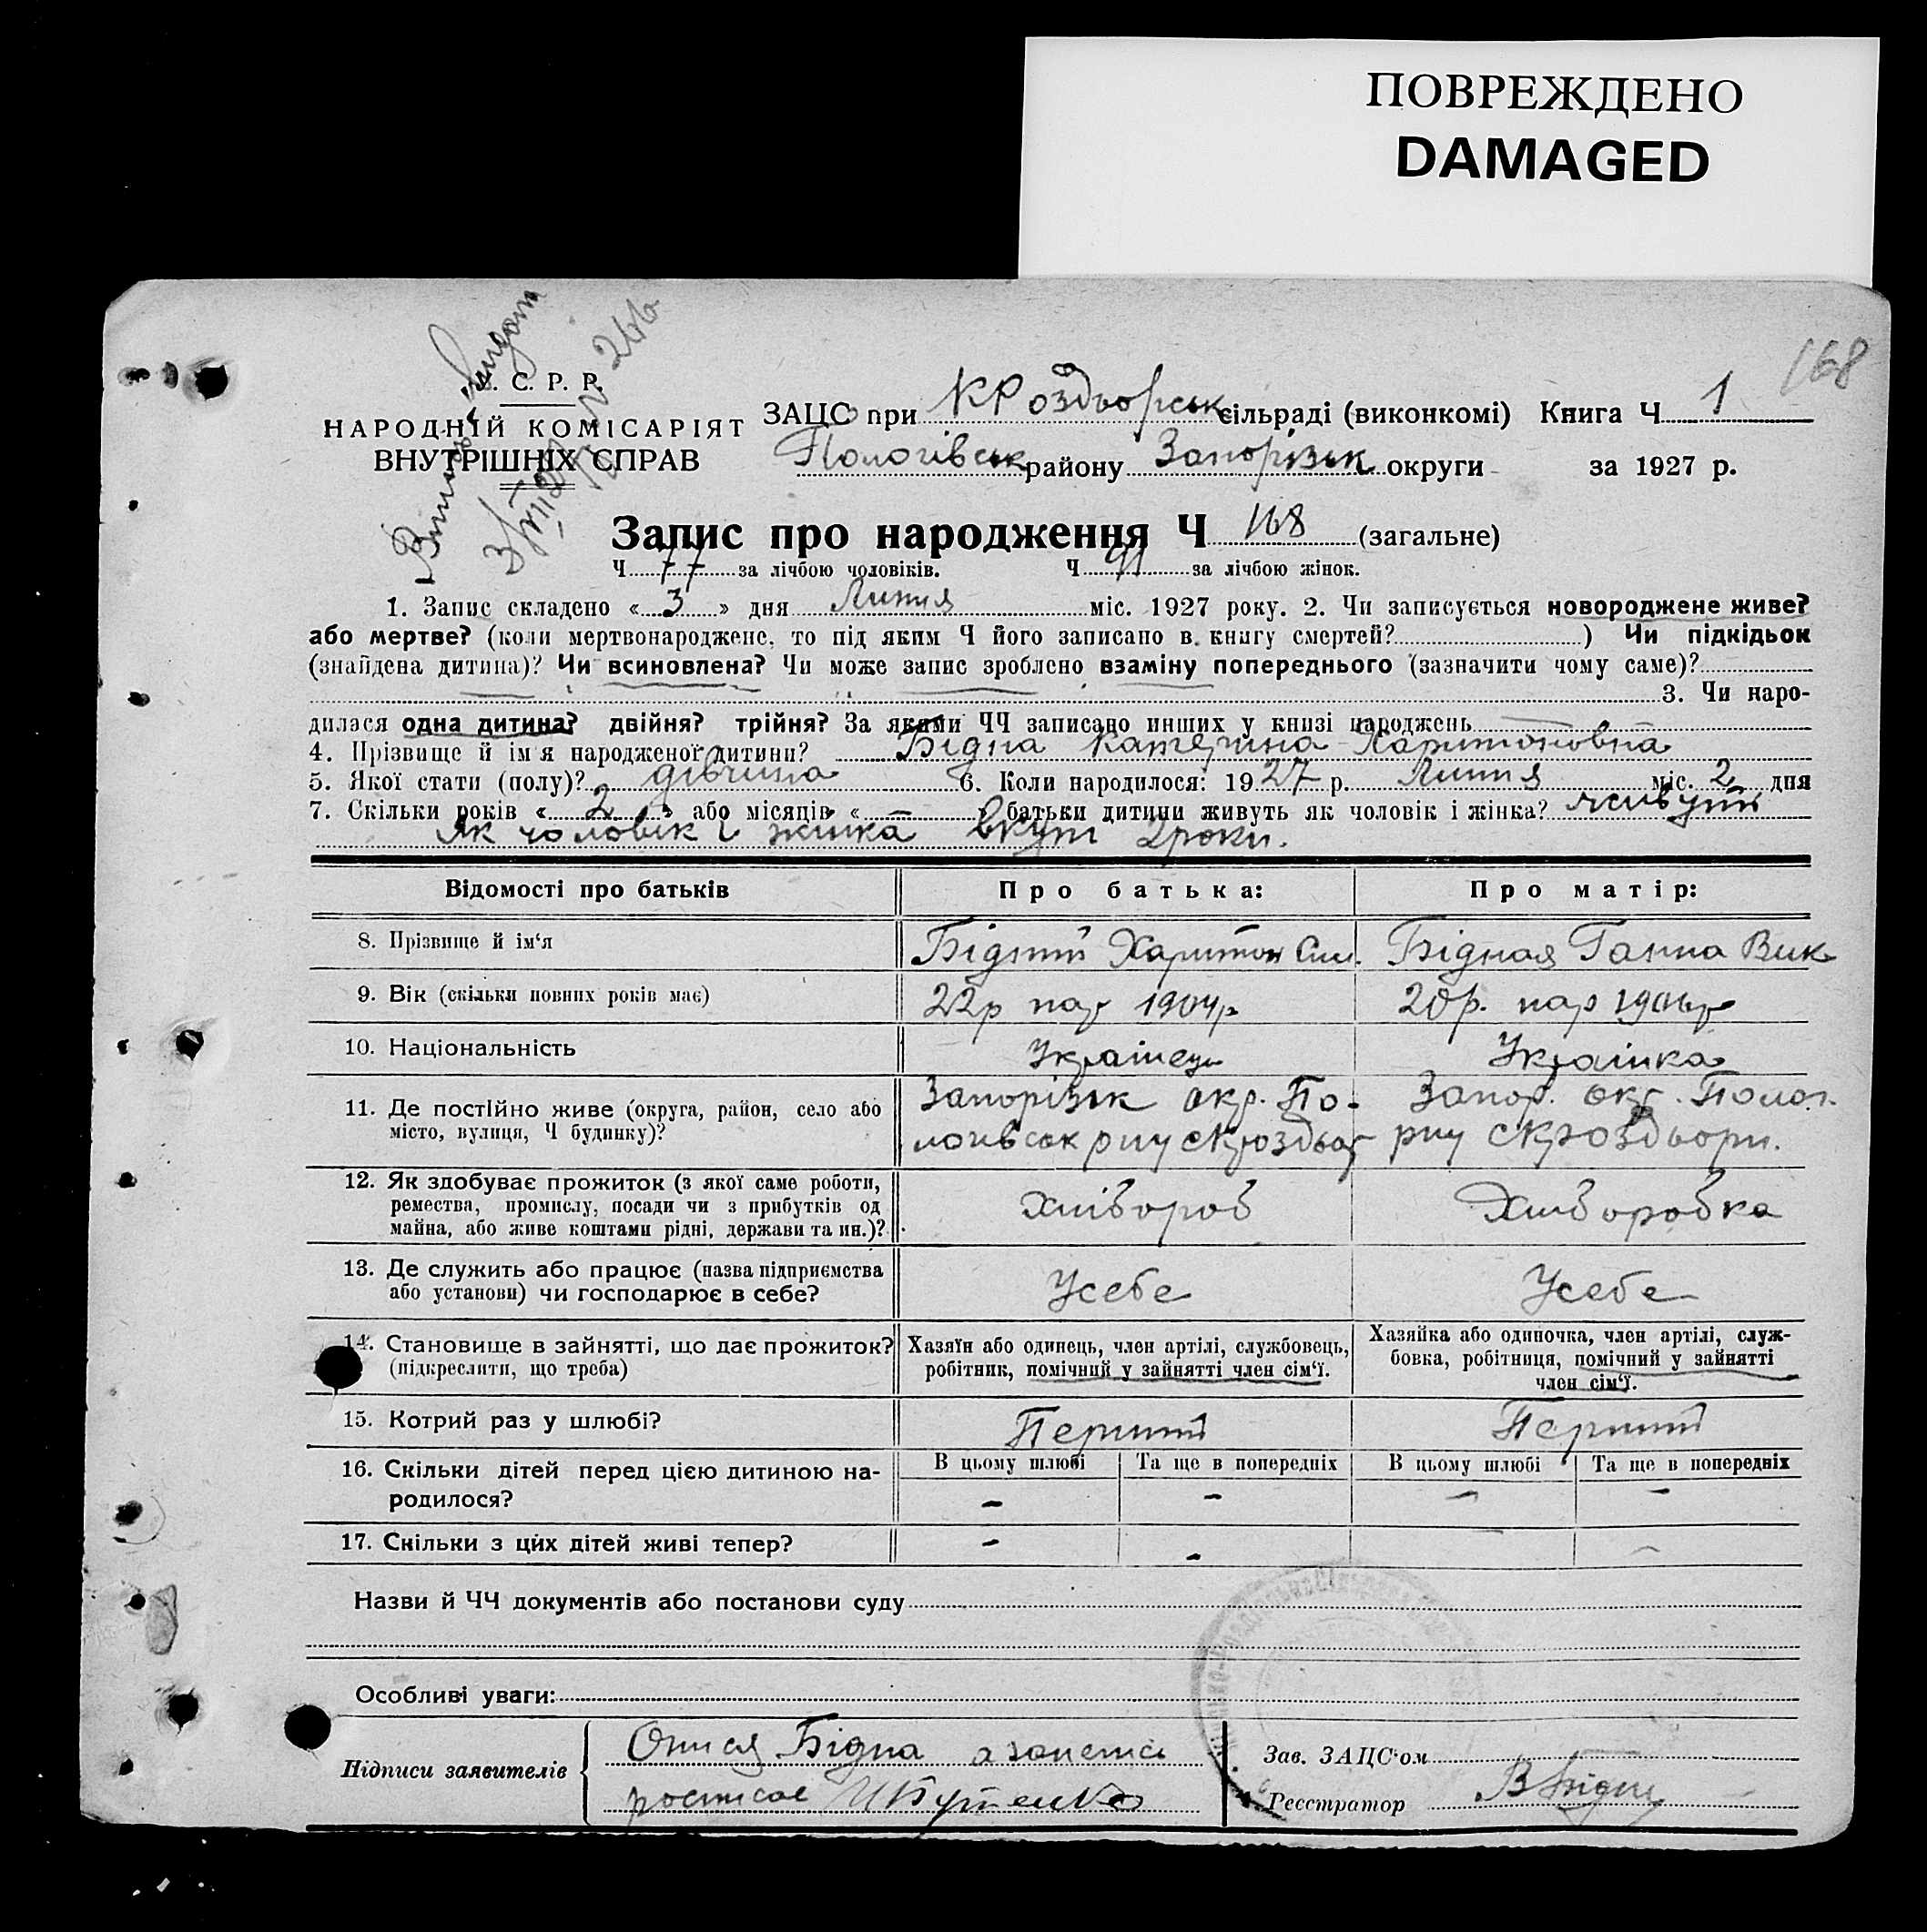 ПОВРЕЖДЕНО
DAMAGED
168
С. Р. Р.
НАРОДНІЙ КОМІСАРІЯТ
ВНУТРІШНІХ СПРАВ
ЗАЦС при КРоздворськ сільраді (виконкомі) Книга Ч 1
Пологівськ району Запорізьк округи за 1927 р.
Запис про народження Ч 168 (загальне)
Ч 77 за лічбою чоловіків. Ч 91 за лічбою жінок.
1. Запис складено «3» дня Липня міс. 1927 року. 2. Чи записується новороджене живе?
або мертве? (коли мертвонароджене, то під яким Ч його записано в книгу смертей? ) Чи підкідьок
(знайдена дитина)? Чи всиновлена? Чи може запис зроблено взаміну попереднього (зазначити чому саме)?
3. Чи наро-
дилася одна дитина? двійня? трійня? За якими ЧЧ записано инших у книзі народжень
4. Прізвище й ім'я народженої дитини? Бідна Катерина Харитоновна
5. Якої стати (полу)? дівчина 6. Коли народилося: 1927 р. Липня міс. 2 дня
7. Скільки років «2» або місяців « » батьки дитини живуть як чоловік і жінка? живуть
Як чоловік і жінка вкупі 2 роки.
Відомості про батьків Про батька: Про матір:
8. Прізвище й ім'я Бідний Харитон Бідная Ганна Вик
9. Вік (скільки повних років має) 22р нар 1904р 20р. нар 1906р
10. Національність Українець Українка
11. Де постійно живе (округа, район, село або Запорізьк окр. По- Запор. окр. Полог.
місто, вулиця, Ч будинку)? логівськ рну сКроздвор рну сКроздвори.
12. Як здобуває прожиток (з якої саме роботи,
ремества, промислу, посади чи з прибутків од Хлібороб Хліборобка
майна, або живе коштами рідні, держави та ин.)?
13. Де служить або працює (назва підприємства Усебе Усебе
або установи) чи господарює в себе?
14. Становище в зайнятті, що дає прожиток? Хазяїн або одинець, член артілі, службовець, Хазяйка або одиночка, член артілі, служ-
(підкреслити, що треба) робітник, помічний у зайнятті член сім'ї. бовка, робітниця, помічний у зайнятті
член сім'ї.
15. Котрий раз у шлюбі? Перший Перший
16. Скільки дітей перед цією дитиною на- В цьому шлюбі Та ще в попередніх В цьому шлюбі Та ще в попередніх
родилося? - - - -
17. Скільки з цих дітей живі тепер? - - -
Назви й ЧЧ документів або постанови суду
Особливі уваги:
Підписи заявителів Бідна
росписав Зав. ЗАЦС'ом
Реєстратор